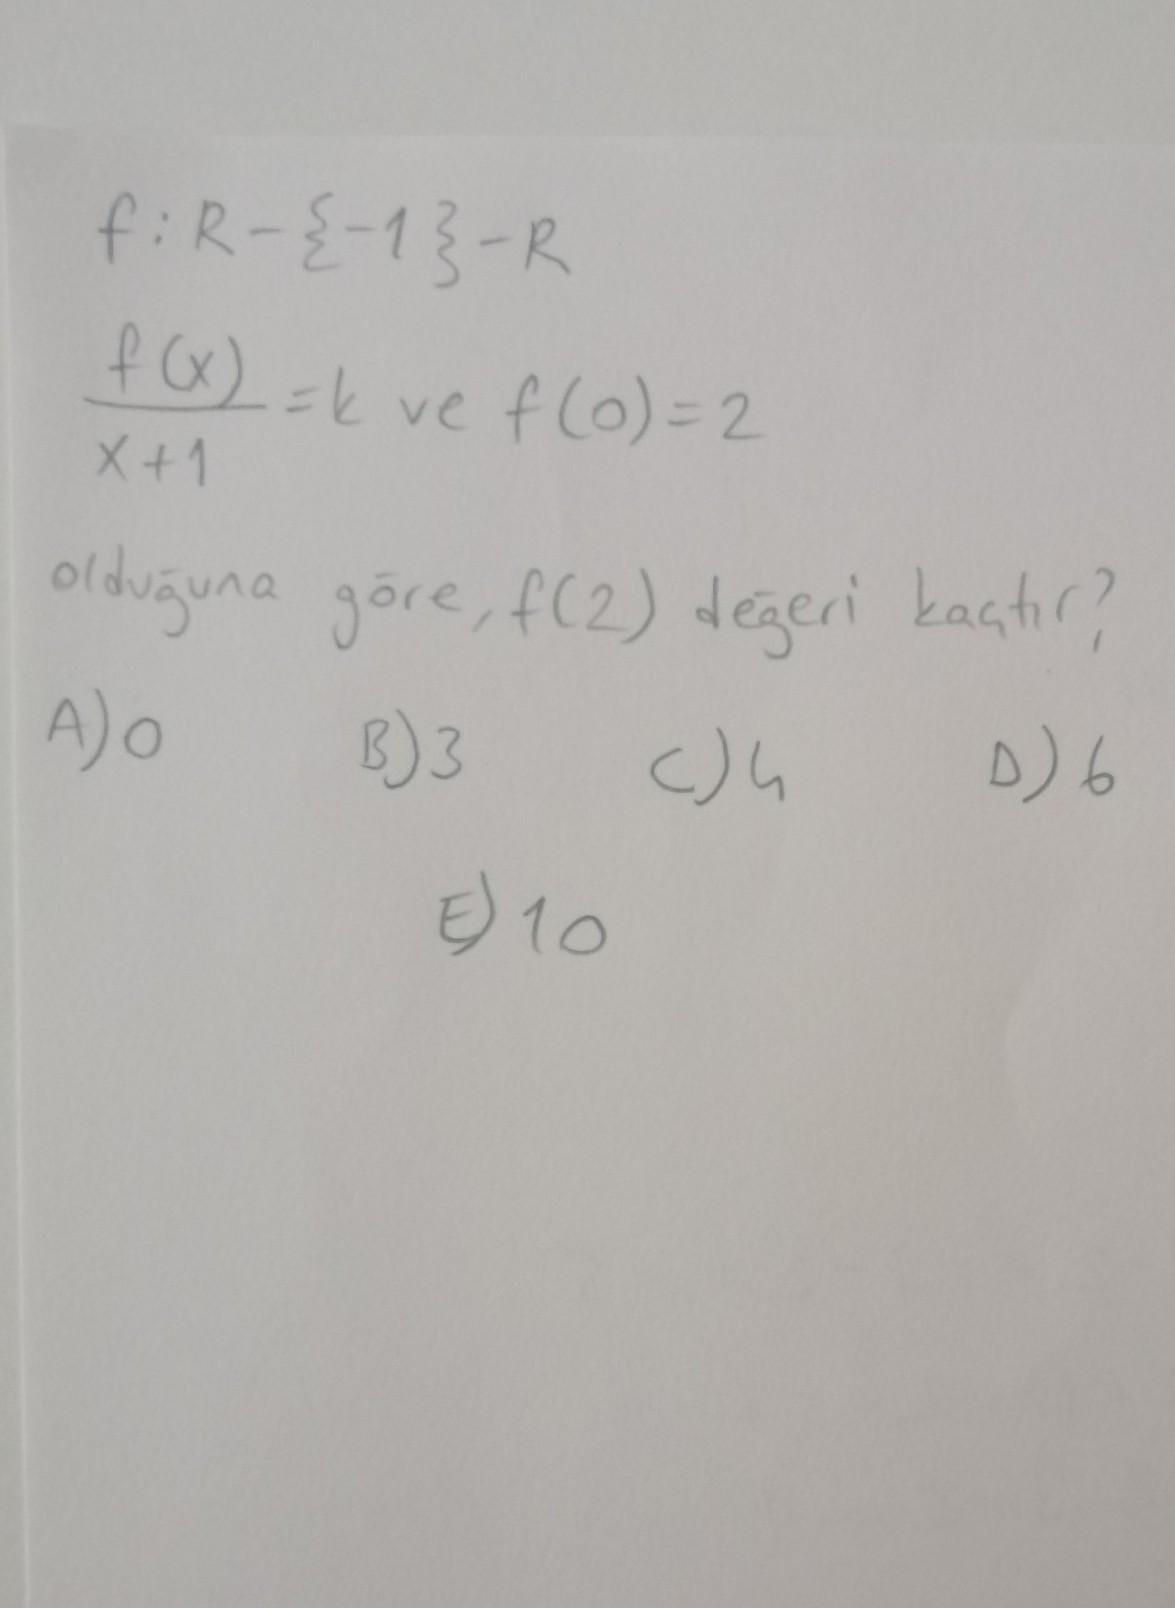 f: R - {-1} - R
f(x)
x+1 = k ve f(0) = 2
olduğuna göre, f(2) değeri kaçtır?
A) 0 B) 3 C) 4 D) 6
E) 10